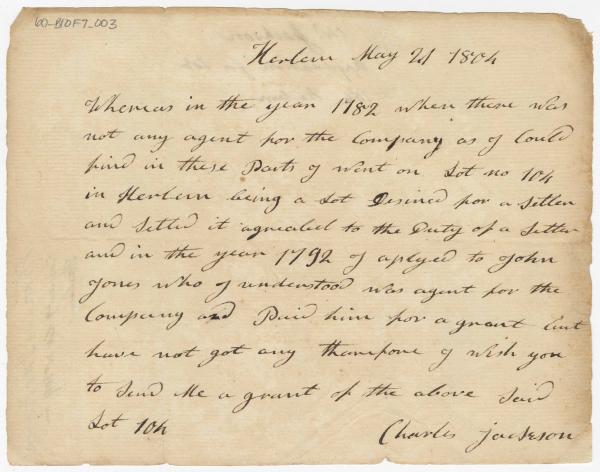 60-B10F7-003
Herlem May 21 1804
Whereas in the year 1782 when there was
not any agent for the Company as I Could
find in these Parts I went on Lot no 104
in Herlem being a Lot Desined for a Setler
and Setled it agreabel to the Duty of a Setler
and in the year 1792 I aplyed to John
Jones who I understood was agent for the
Company and Paid him for a grant but
have not got any tharefore I wish you
to Send Me a grant of the above Said
Lot 104
Charles Jackson